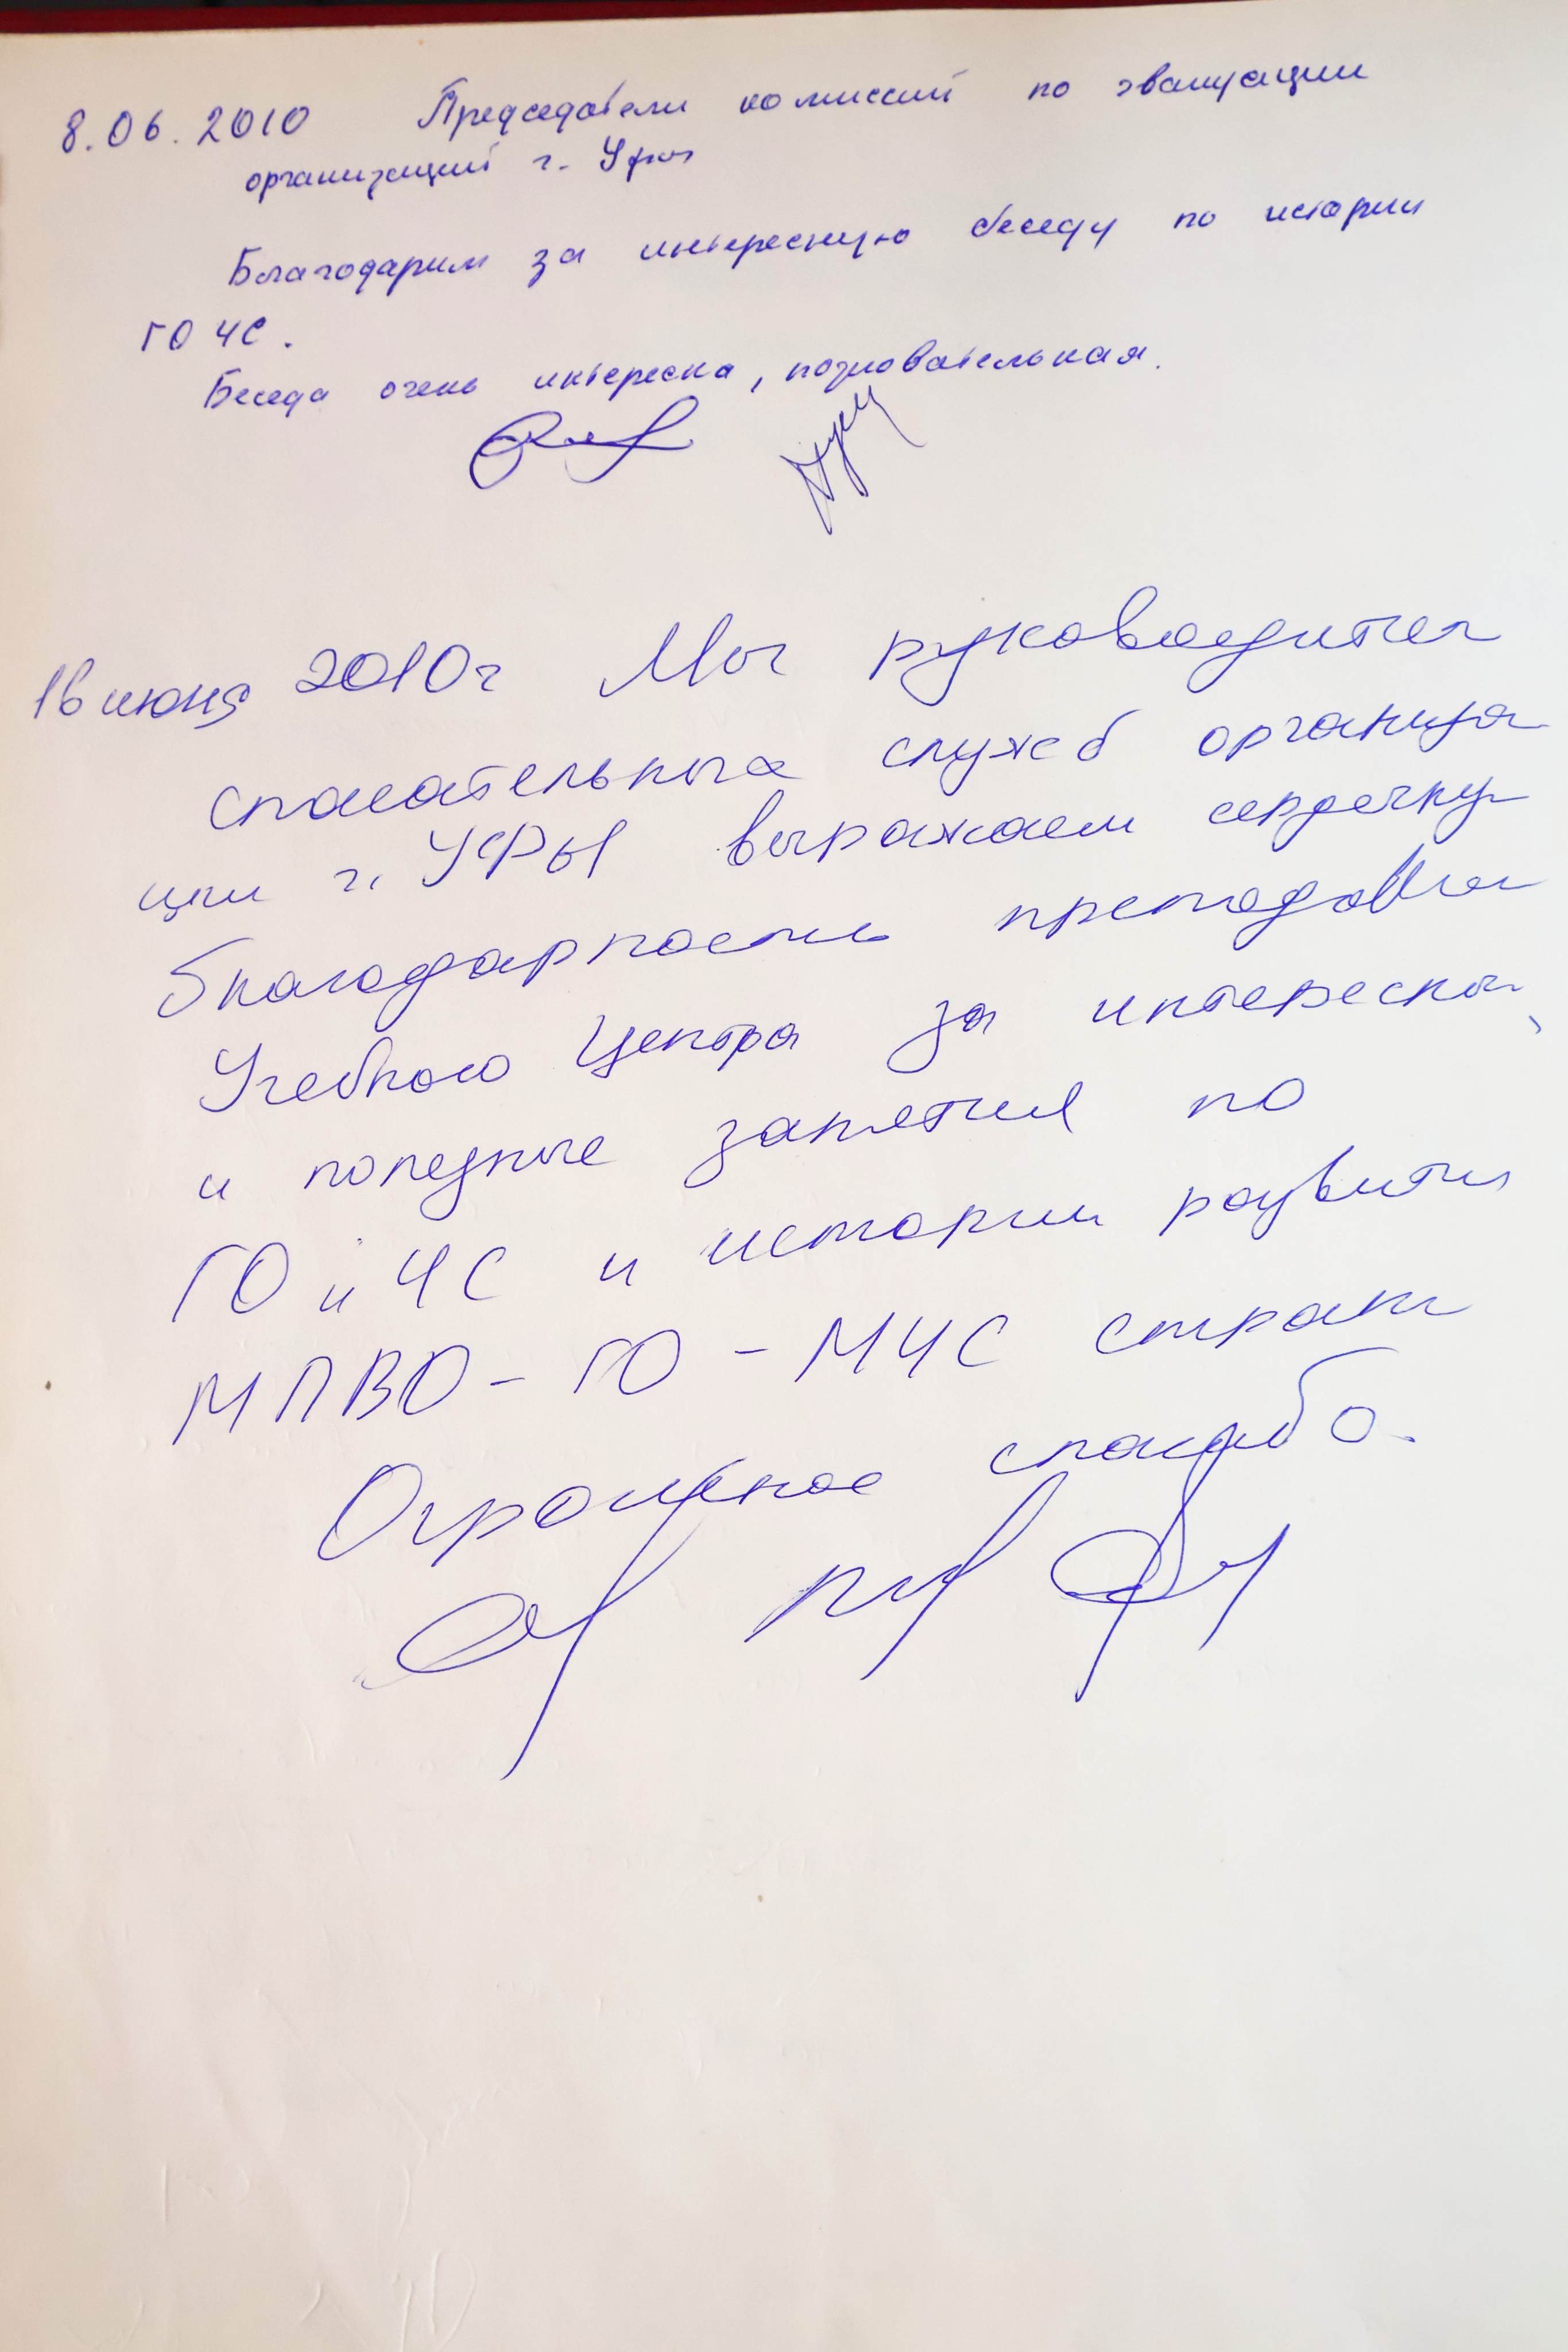 8.06.2010 Председатели комиссий по эвакуации
организаций г. Уфы
Благодарим за интересную беседу по истории
ГО ЧС.
Беседа очень интересна, позновательная.
16 июня 2010г Мы руководители
спасательных служб организа
ции г. УФЫ выражаем сердечную
благодарность
Учебного Центра за интересные
и полезные занятия по
ГО и ЧС и истории развития
МПВО - ГО - МЧС страны
Огромное спасибо.